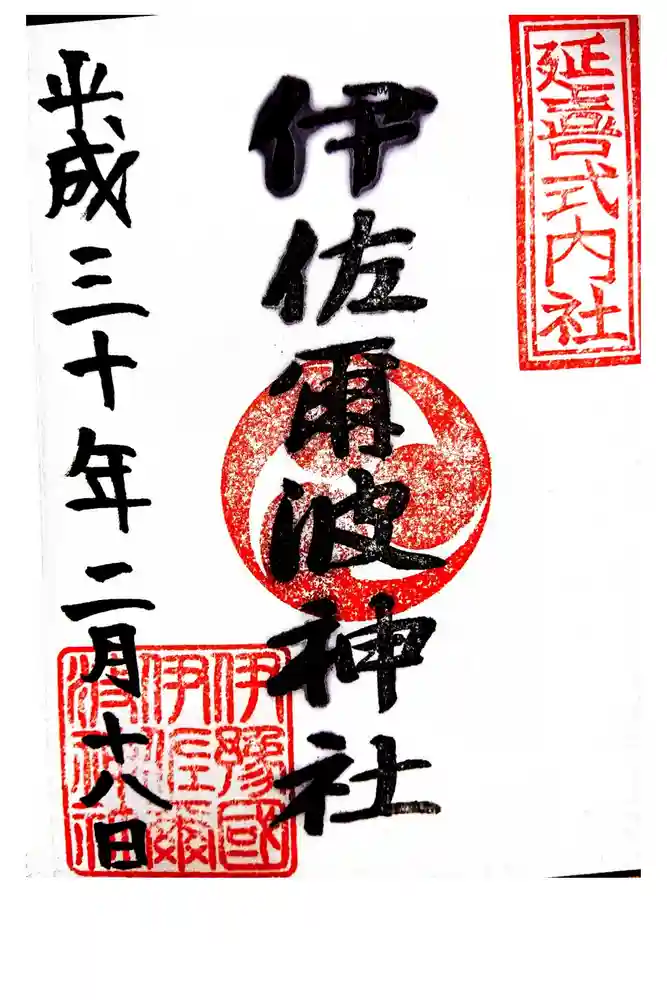 延喜式内社
伊佐爾波神社
伊豫國
伊佐爾
波神社
平成三十年二月十八日